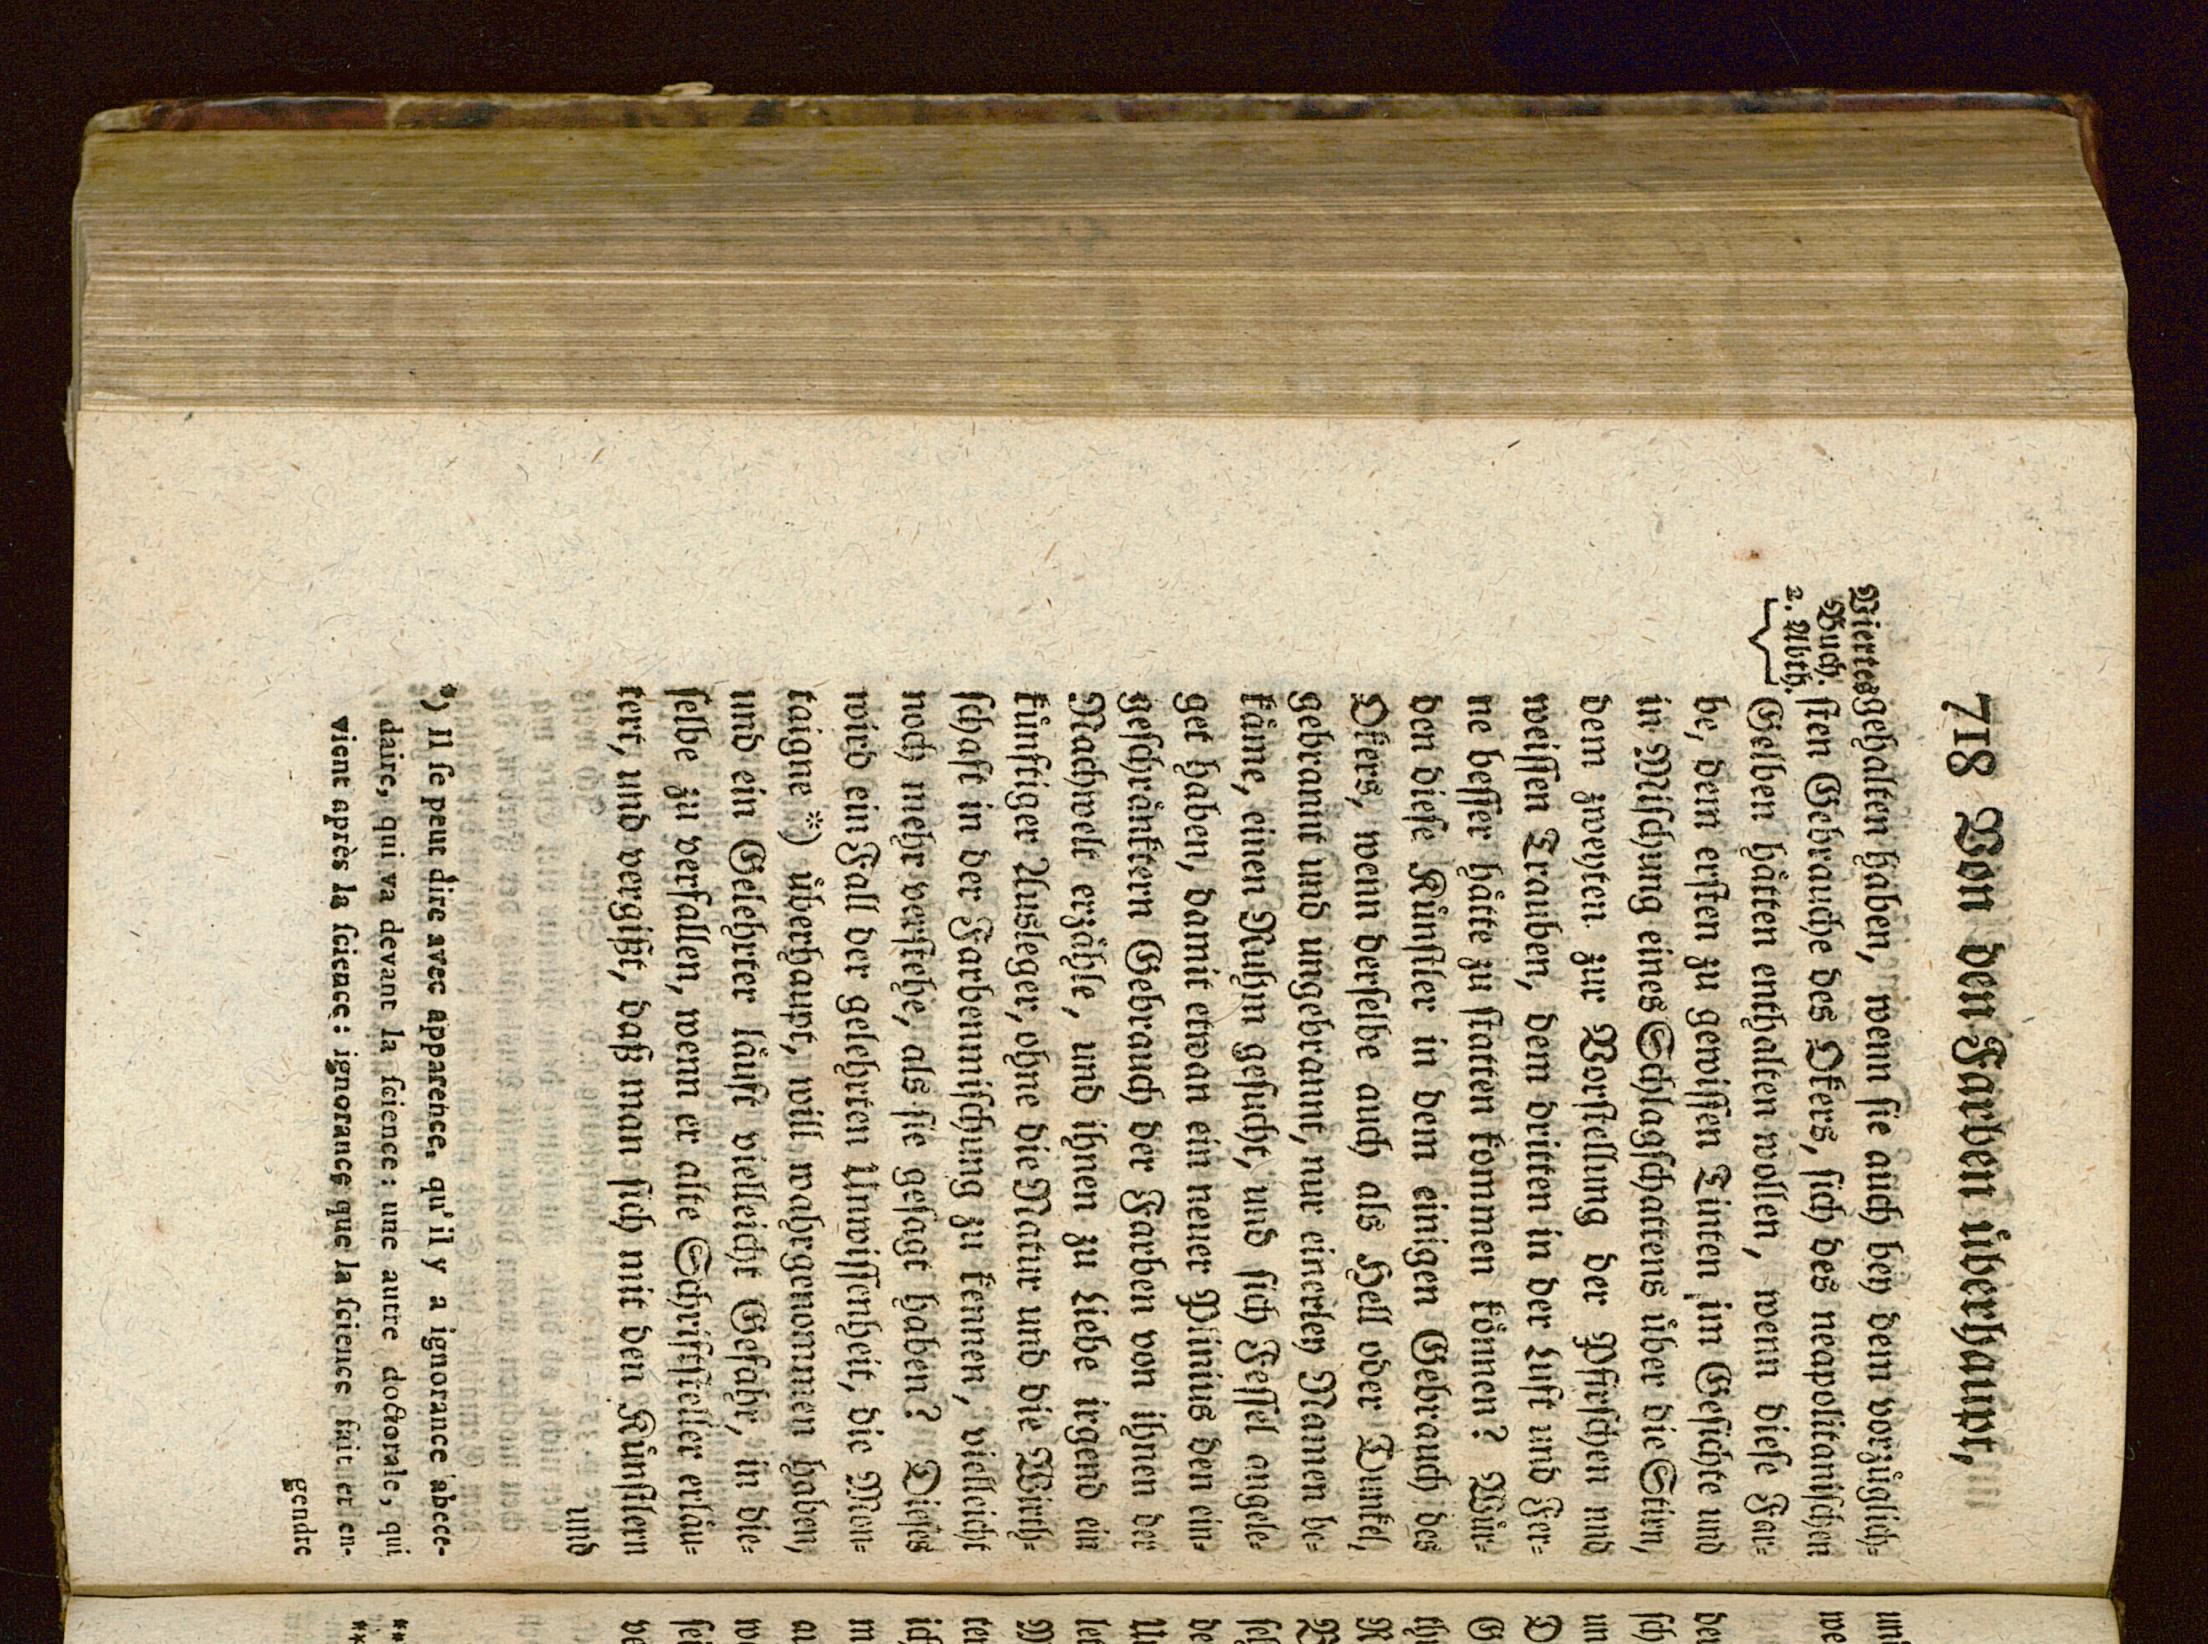 718 Von den Farben überhaupt,
Viertes
Buch.
2. Abth.
gehalten haben, wenn sie auch bey dem vorzüglich-
sten Gebrauche des Okers, sich des neapolitanischen
Gelben hätten enthalten wollen, wenn diese Far-
be, dem ersten zu gewissen Tinten im Gesichte und
in Mischung eines Schlagschattens über die Stirn,
dem zweyten zur Vorstellung der Pfirschen und
weissen Trauben, dem dritten in der Luft und Fer-
ne besser hätte zu statten kommen können? Wür-
den diese Künstler in dem einigen Gebrauch des
Okers, wenn derselbe auch als Hell oder Dunkel,
gebrannt und ungebrannt, nur einerley Namen be-
käme, einen Ruhm gesucht, und sich Fessel angele-
get haben, damit etwan ein neuer Plinius den ein-
geschränktern Gebrauch der Farben von ihnen der
Nachwelt erzöhle, und ihnen zu Liebe irgend ein
künftiger Ausleger, ohne die Natur und die Wirth-
schaft in der Farbenmischung zu kennen, vielleicht
noch mehr verstehe, als sie gesagt haben? Dieses
wird ein Fall der gelehrten Unwissenheit, die Mon-
taigne *) überhaupt, will wahrgenommen haben,
und ein Gelehrter läuft vielleicht Gefahr, in die-
selbe zu verfallen, wenn er alte Schriftsteller erläu-
tert, und vergißt, daß man sich mit den Künstlern
und
*) Il se peut dire avec apparence, qu'il y a ignorance abece-
daire, qui va devant la science: une autre doctorale, qui
vient après la science: ignorance que la science fait et en-
gendre